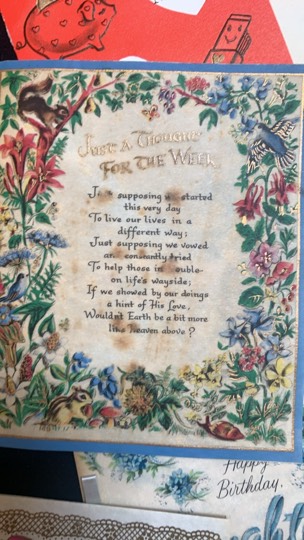 Just a Thought
For the Week
supposing started
this very day
To live our lives in a
different way;
Just supposing we vowed
an constantly tried
To help those in ouble-
on life's wayside;
If we showed by our doings
a hint of His Love,
Wouldn't Earth be a bit more
like heaven above?
Happy
Birthday,